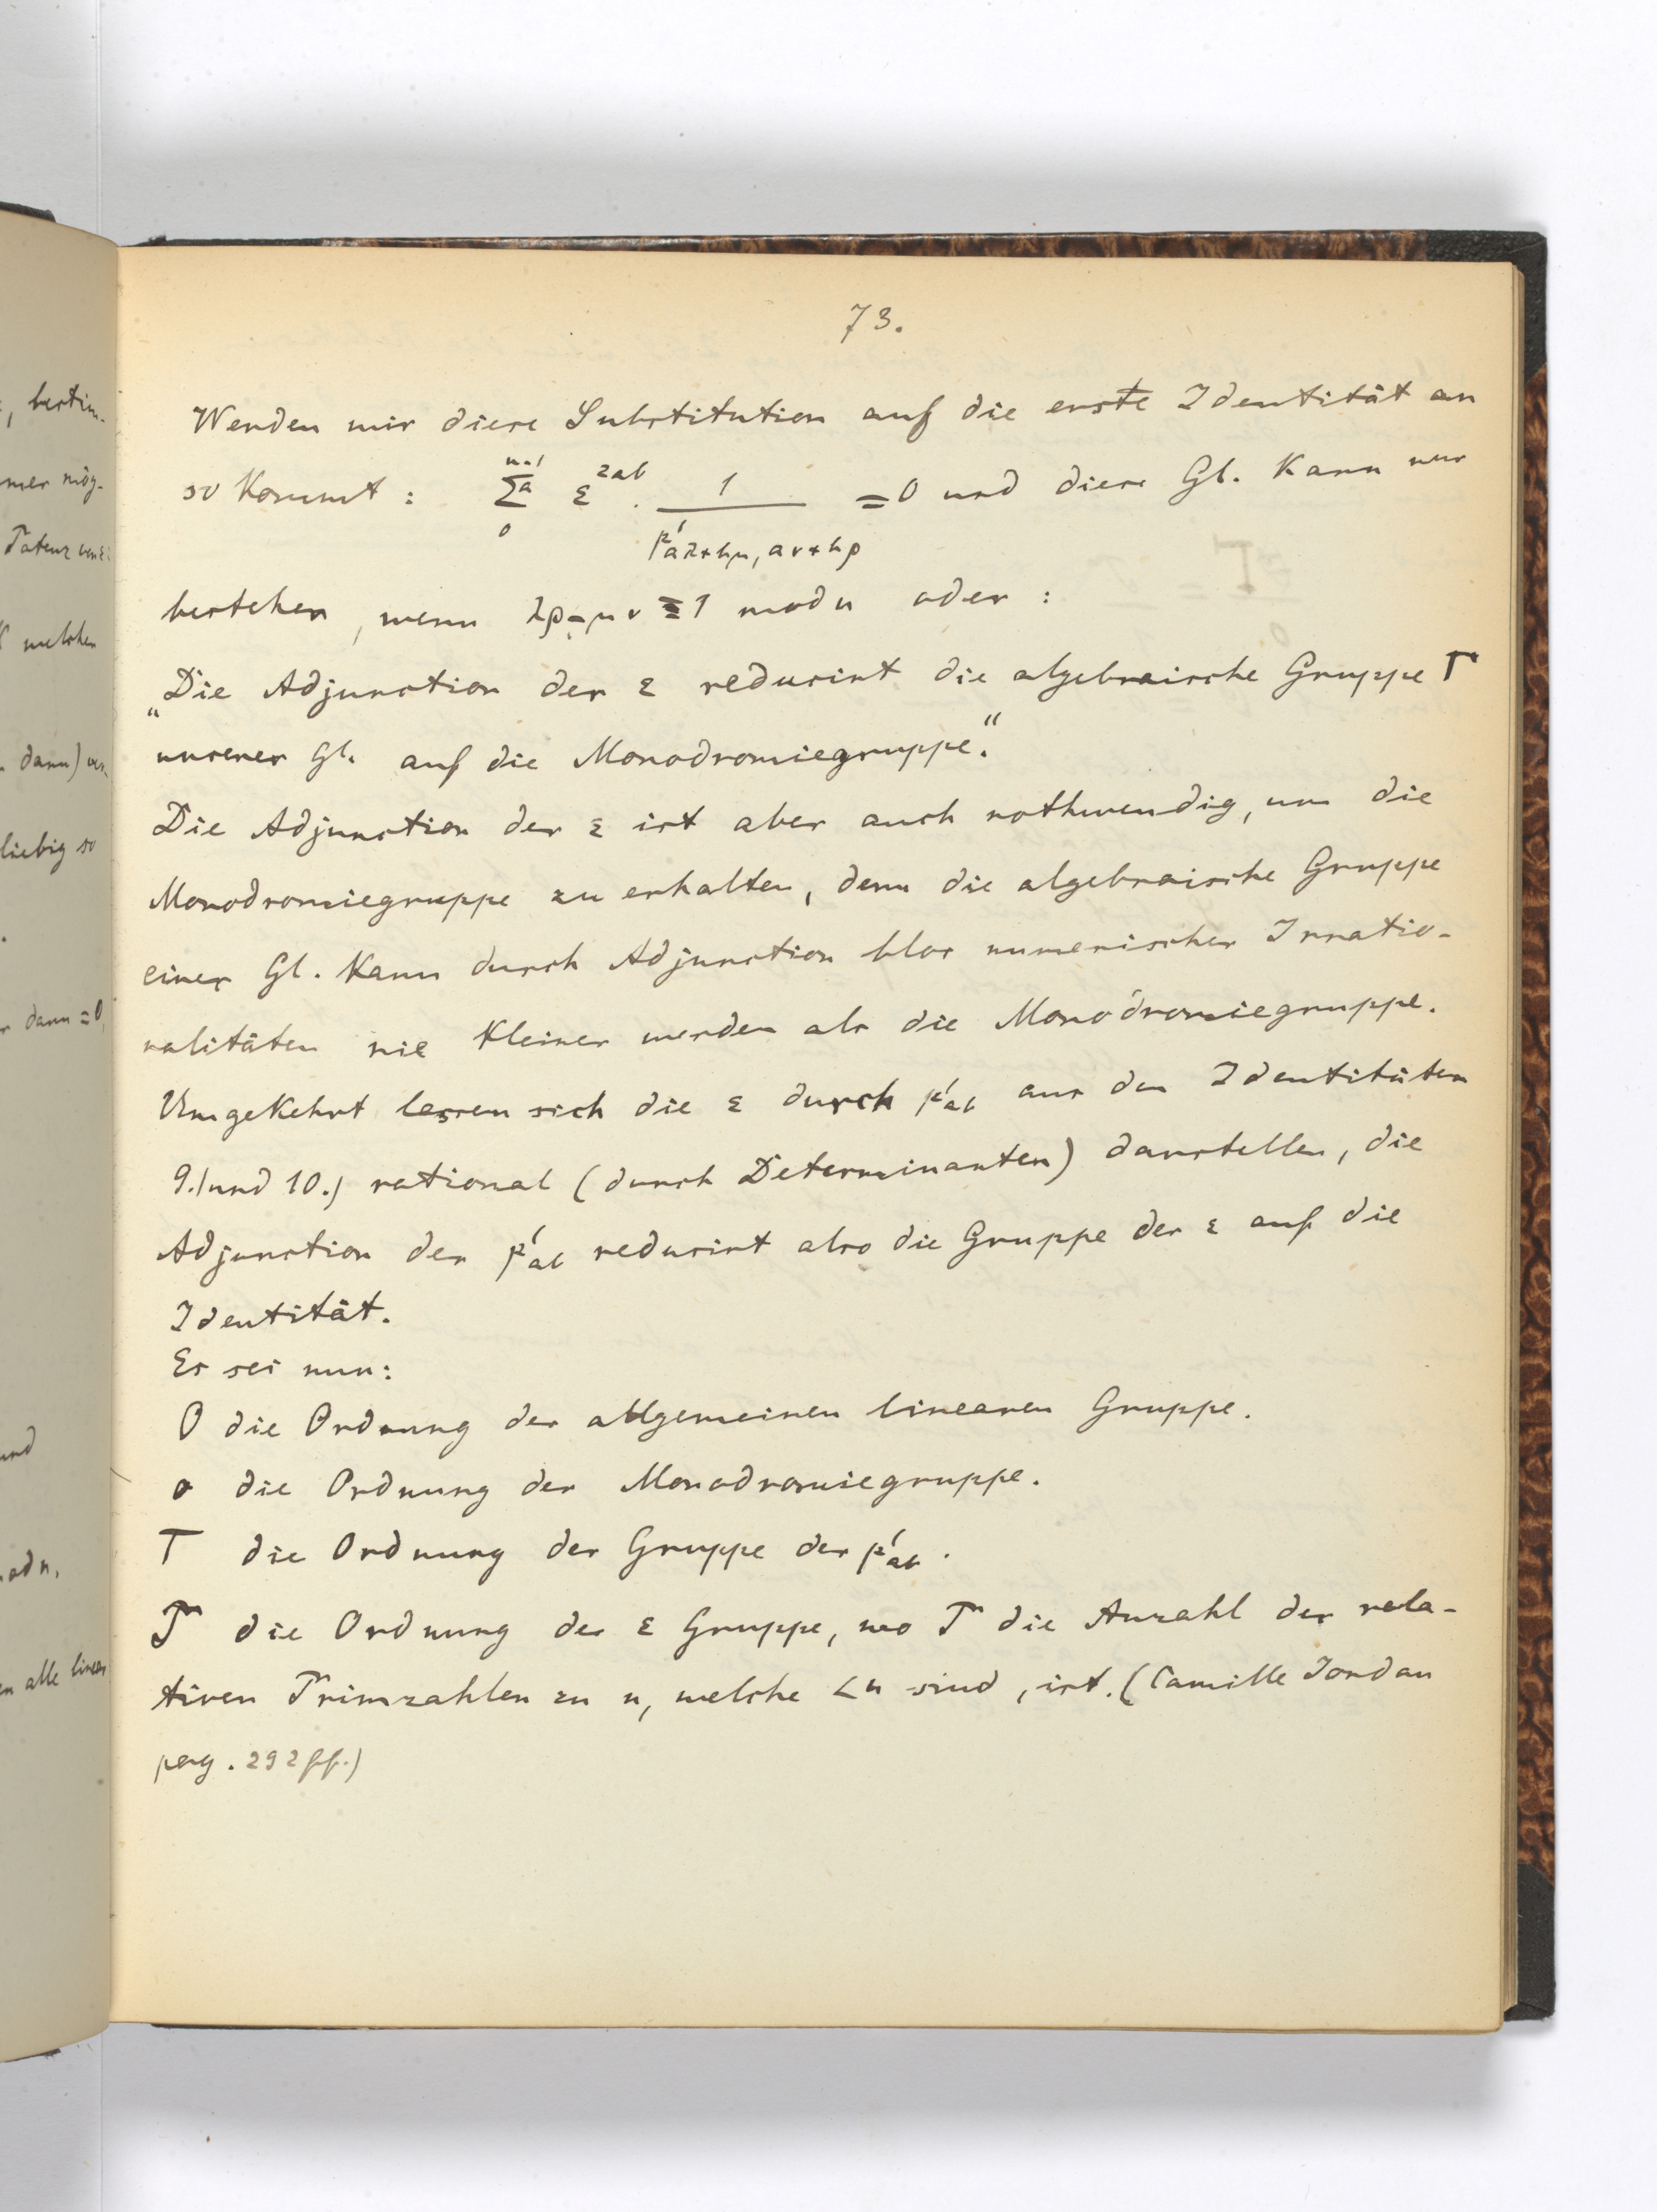 73.
Wenden wir diese Substitution auf die erste Identität an
so kommt : \sum_{0}^{n-1}{}_a ε^{2ab} · \frac{1}{p'_{aλ+bμ, aν+bρ}} = 0 und diese Gl. kann nur
bestehen, wenn λρ-μν ≡ 1 mod n oder :
„Die Adjunction der ε reducirt die algebraische Gruppe Γ
unserer Gl. auf die Monodromiegruppe.“
Die Adjunction der ε ist aber auch nothwendig, um die
Monodromiegruppe zu erhalten, denn die algebraische Gruppe
einer Gl. kann durch Adjunction blos numerischer Irratio-
nalitäten nie kleiner werden als die Monodromiegruppe.
Umgekehrt lassen sich die ε durch p'_{ab} aus den Identitäten
9.) und 10.) rational (durch Determinanten) darstellen, die
Adjunction der p'_{ab} reducirt also die Gruppe der ε auf die
Identität.
Es sei nun:
O die Ordnung der allgemeinen linearen Gruppe.
o die Ordnung der Monodromiegruppe.
T die Ordnung der Gruppe der p'_{ab}.
die Ordnung der ε Gruppe, wo die Anzahl der rela-
tiven Primzahlen zu n, welche < n sind, ist. (Camille Jordan
pag. 292 ff.)
, bestim-
mer mög-
welchen
dann)
liebig so
dann = 0,
und
mod n.
alle linear